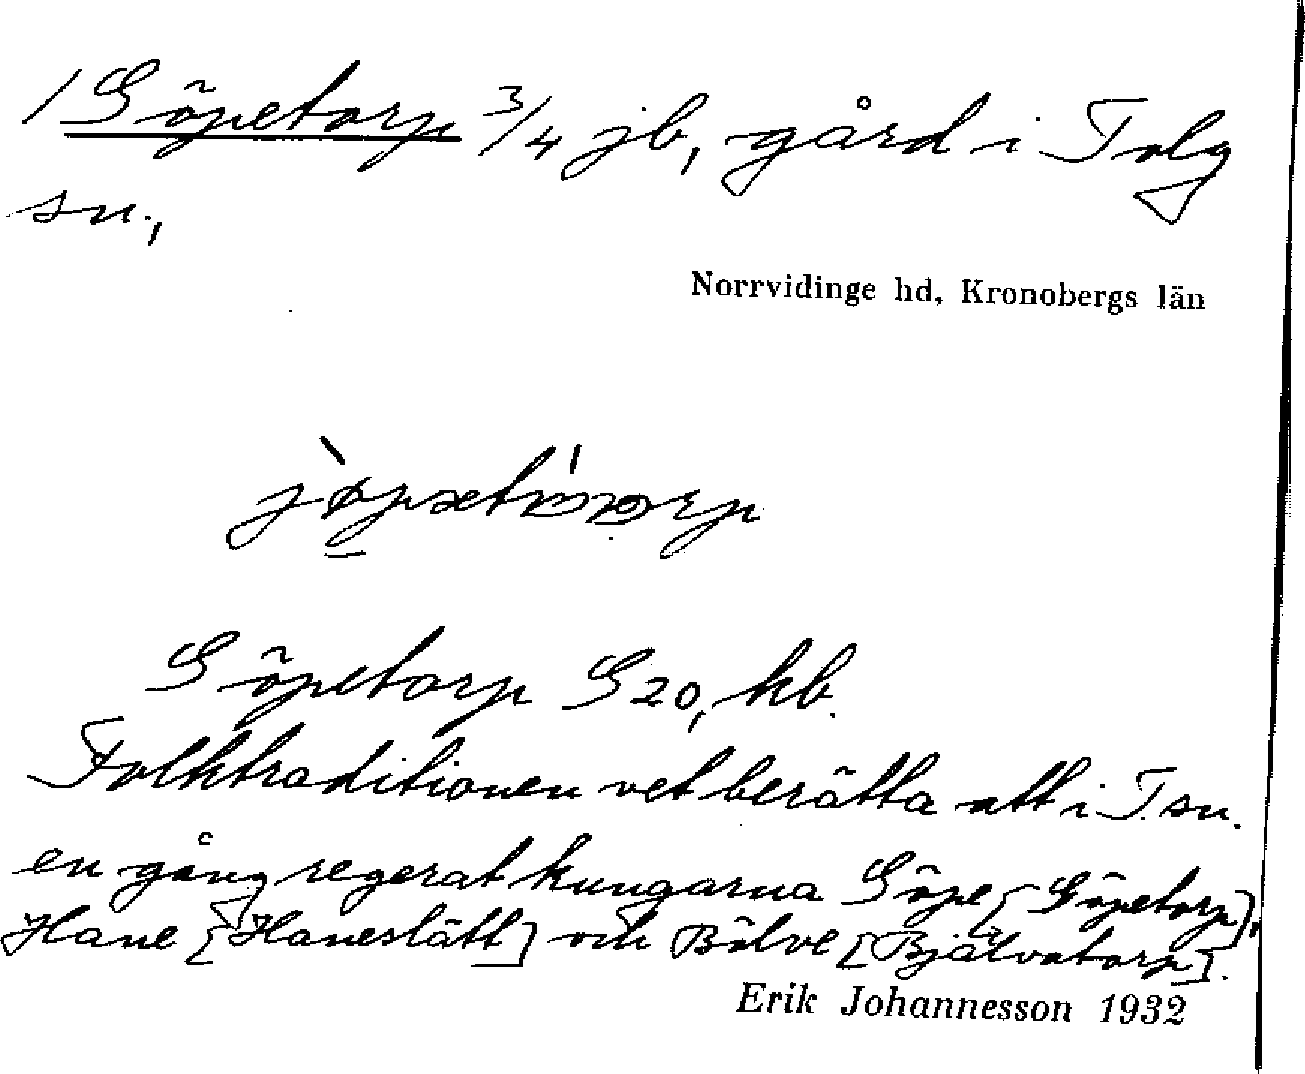 / Göpetorp 3/4 jb, gård i Tolg
sn.,
Norrvidinge hd, Kronobergs län
Göpetorp G20, kb.
Folktraditionen vet berätta att i T. sn.
en gång regerat kungarna Göpe [Göpetorp],
Hane [Haneslätt] och Bölve [Bjälvatorp].
Erik Johannesson 1932